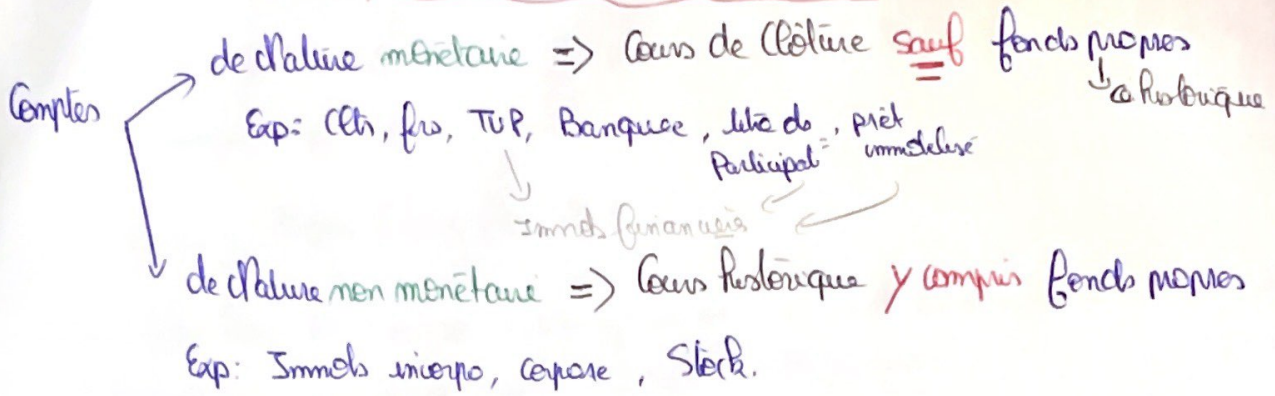 Comptes
de Nature monétaire => Cours de Clôture sauf fonds propres
↓ C historique
Exp: Clts, frs, TUP, Banque, titre de participat°, prêt immobilisé
Immob financière
de Nature non monétaire => Cours historique y compris fonds propres
Exp: Immob incorpo, corpore, Stock.